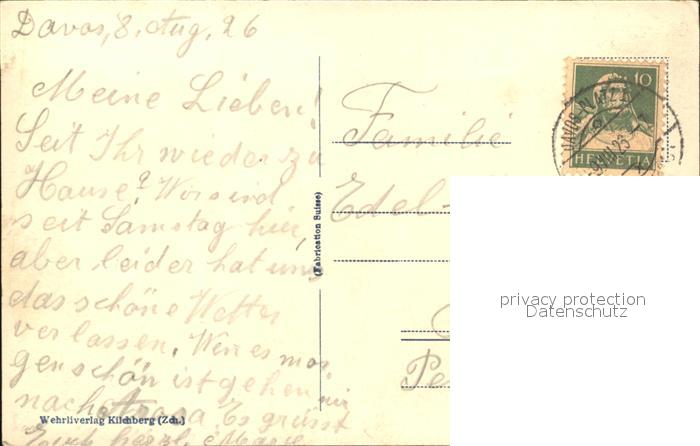 Davos, 8. Aug. 26
Meine Lieben!
Seit Ihr wieder zu
Hause? Wir sind
seit Samstag hier,
aber leider hat uns
das schöne Wetter
verlassen. Wenn es mor
gen schön ist gehen wir
nach Arosa. Es grüsst
Euch herzl. Marie
Wehrliverlag Kilchberg (Zch.)
(Fabrication Suisse)
Familie
Edel-
Pe
10
HELVETIA
DAVOS-PLATZ
privacy protection
Datenschutz